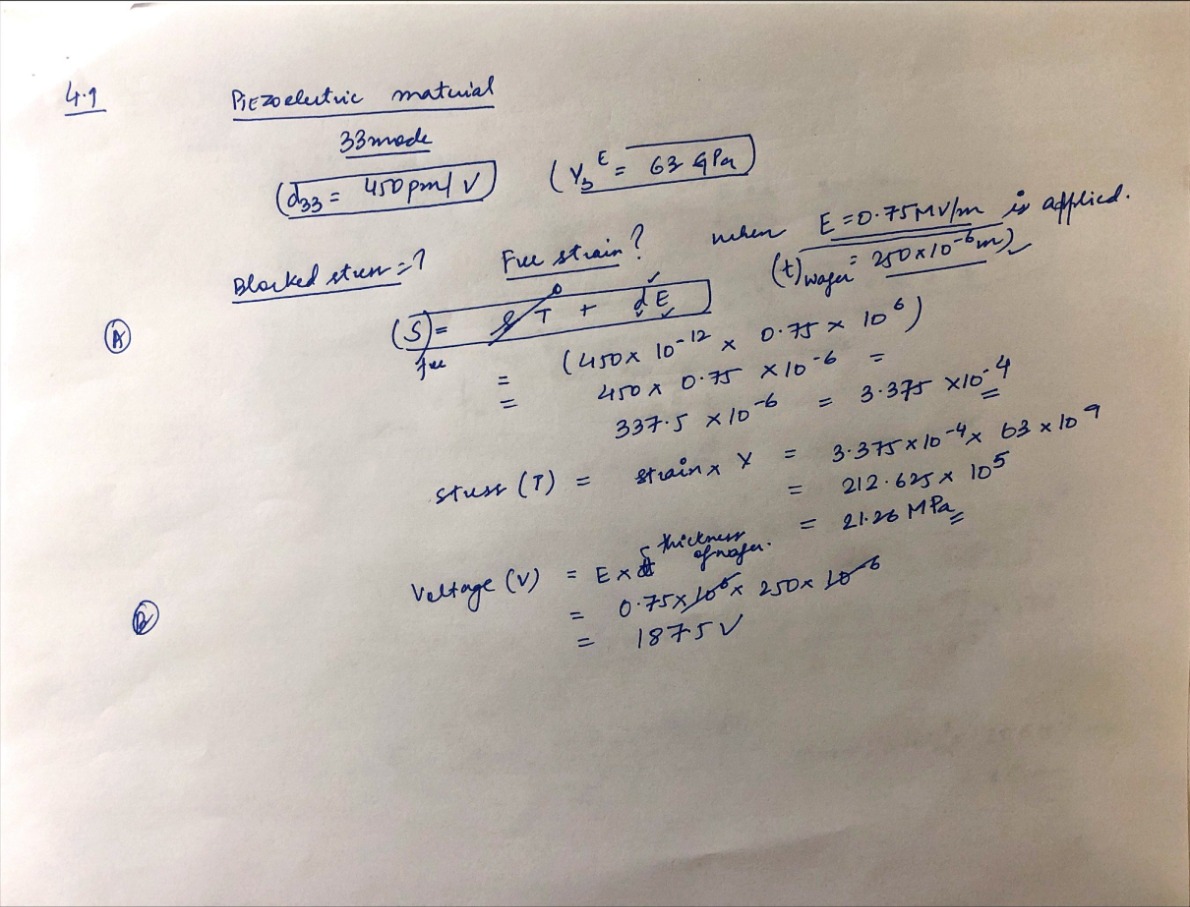 4.1 Piezoelectric material
33 mode
(d33 = 450 pm/V) (Y3^E = 63 GPa)
Blocked stress = ? Free strain? when E = 0.75 MV/m is applied.
(t)wafer = 250 x 10^-6 m)
A (S)free = s T + d E
= (450 x 10^-12 x 0.75 x 10^6)
= 450 x 0.75 x 10^-6 =
337.5 x 10^-6 = 3.375 x 10^-4
stress (T) = strain x Y = 3.375 x 10^-4 x 63 x 10^9
= 212.625 x 10^5
= 21.26 MPa
Voltage (V) = E x thickness of wafer.
B = 0.75 x 10^6 x 250 x 10^-6
= 1875 V